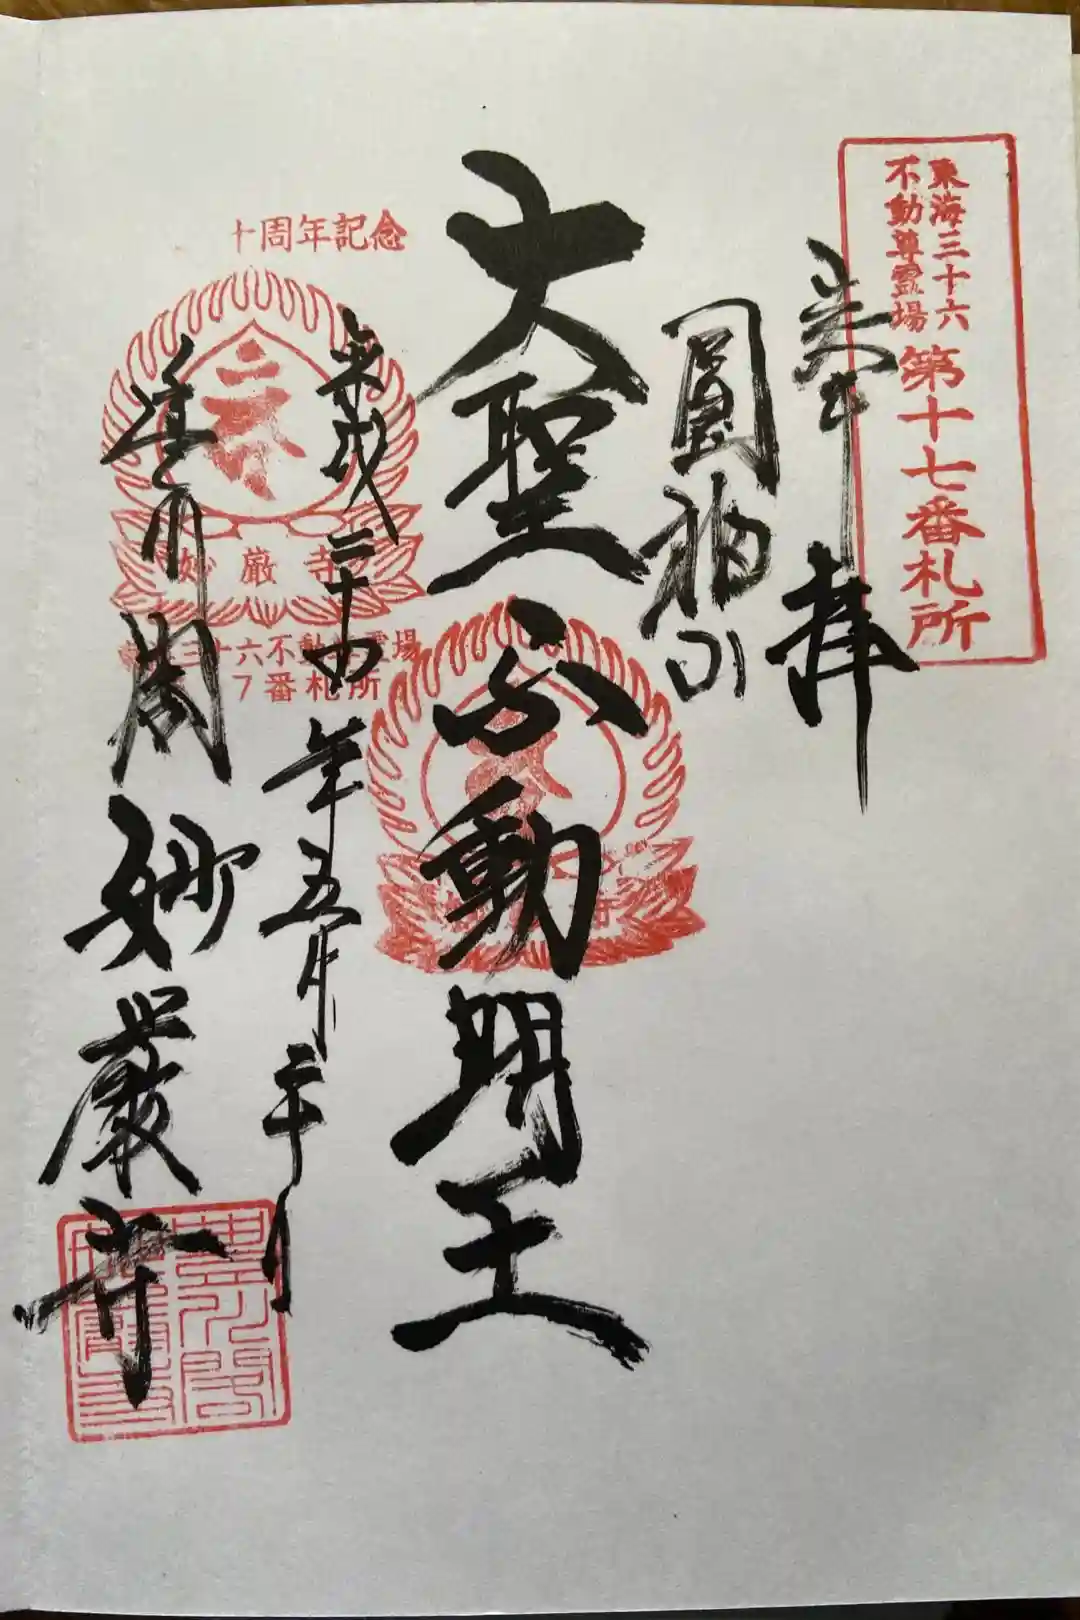 東海三十六
不動尊霊場
第十七番札所
奉拝
圓福山
大聖不動明王
十周年記念
妙厳寺
三十六不動尊霊場
7番札所
平成二十四年五月二十日
豊川閣妙嚴寺